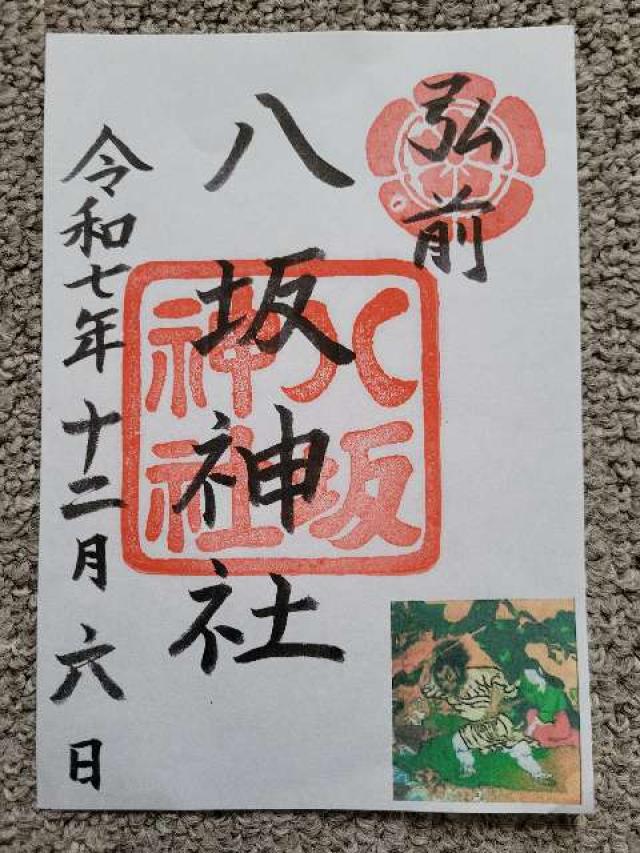 弘前
八坂神社
八坂
神社
令和七年十二月六日